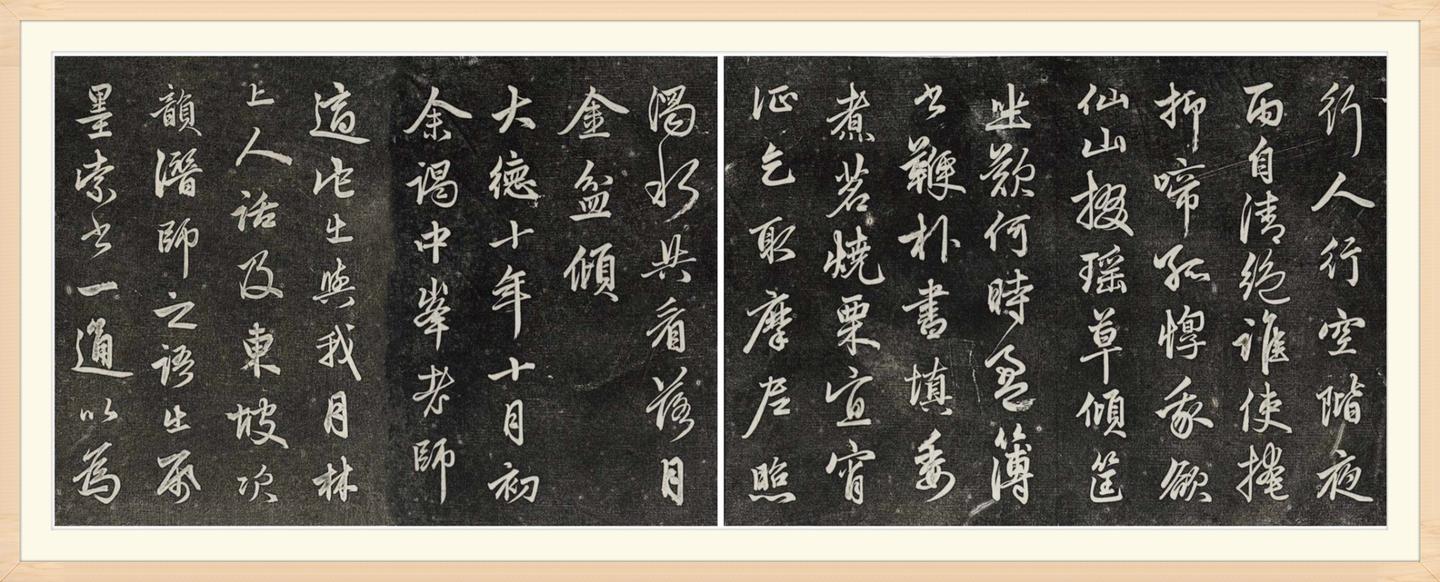 行人行空階夜
雨自清絕誰使掩
抑啼孤惸我欲
仙山掇瑤草傾筐
坐歎何時盈簿
書鞭朴晝填委
煮茗燒栗宜宵
征乞取摩尼照
濁水共看落月
金盆傾
大德十年十月初
余謁中峯老師
適他出與我月林
上人話及東坡次
韻潛師之語出帋
墨索書一通以為